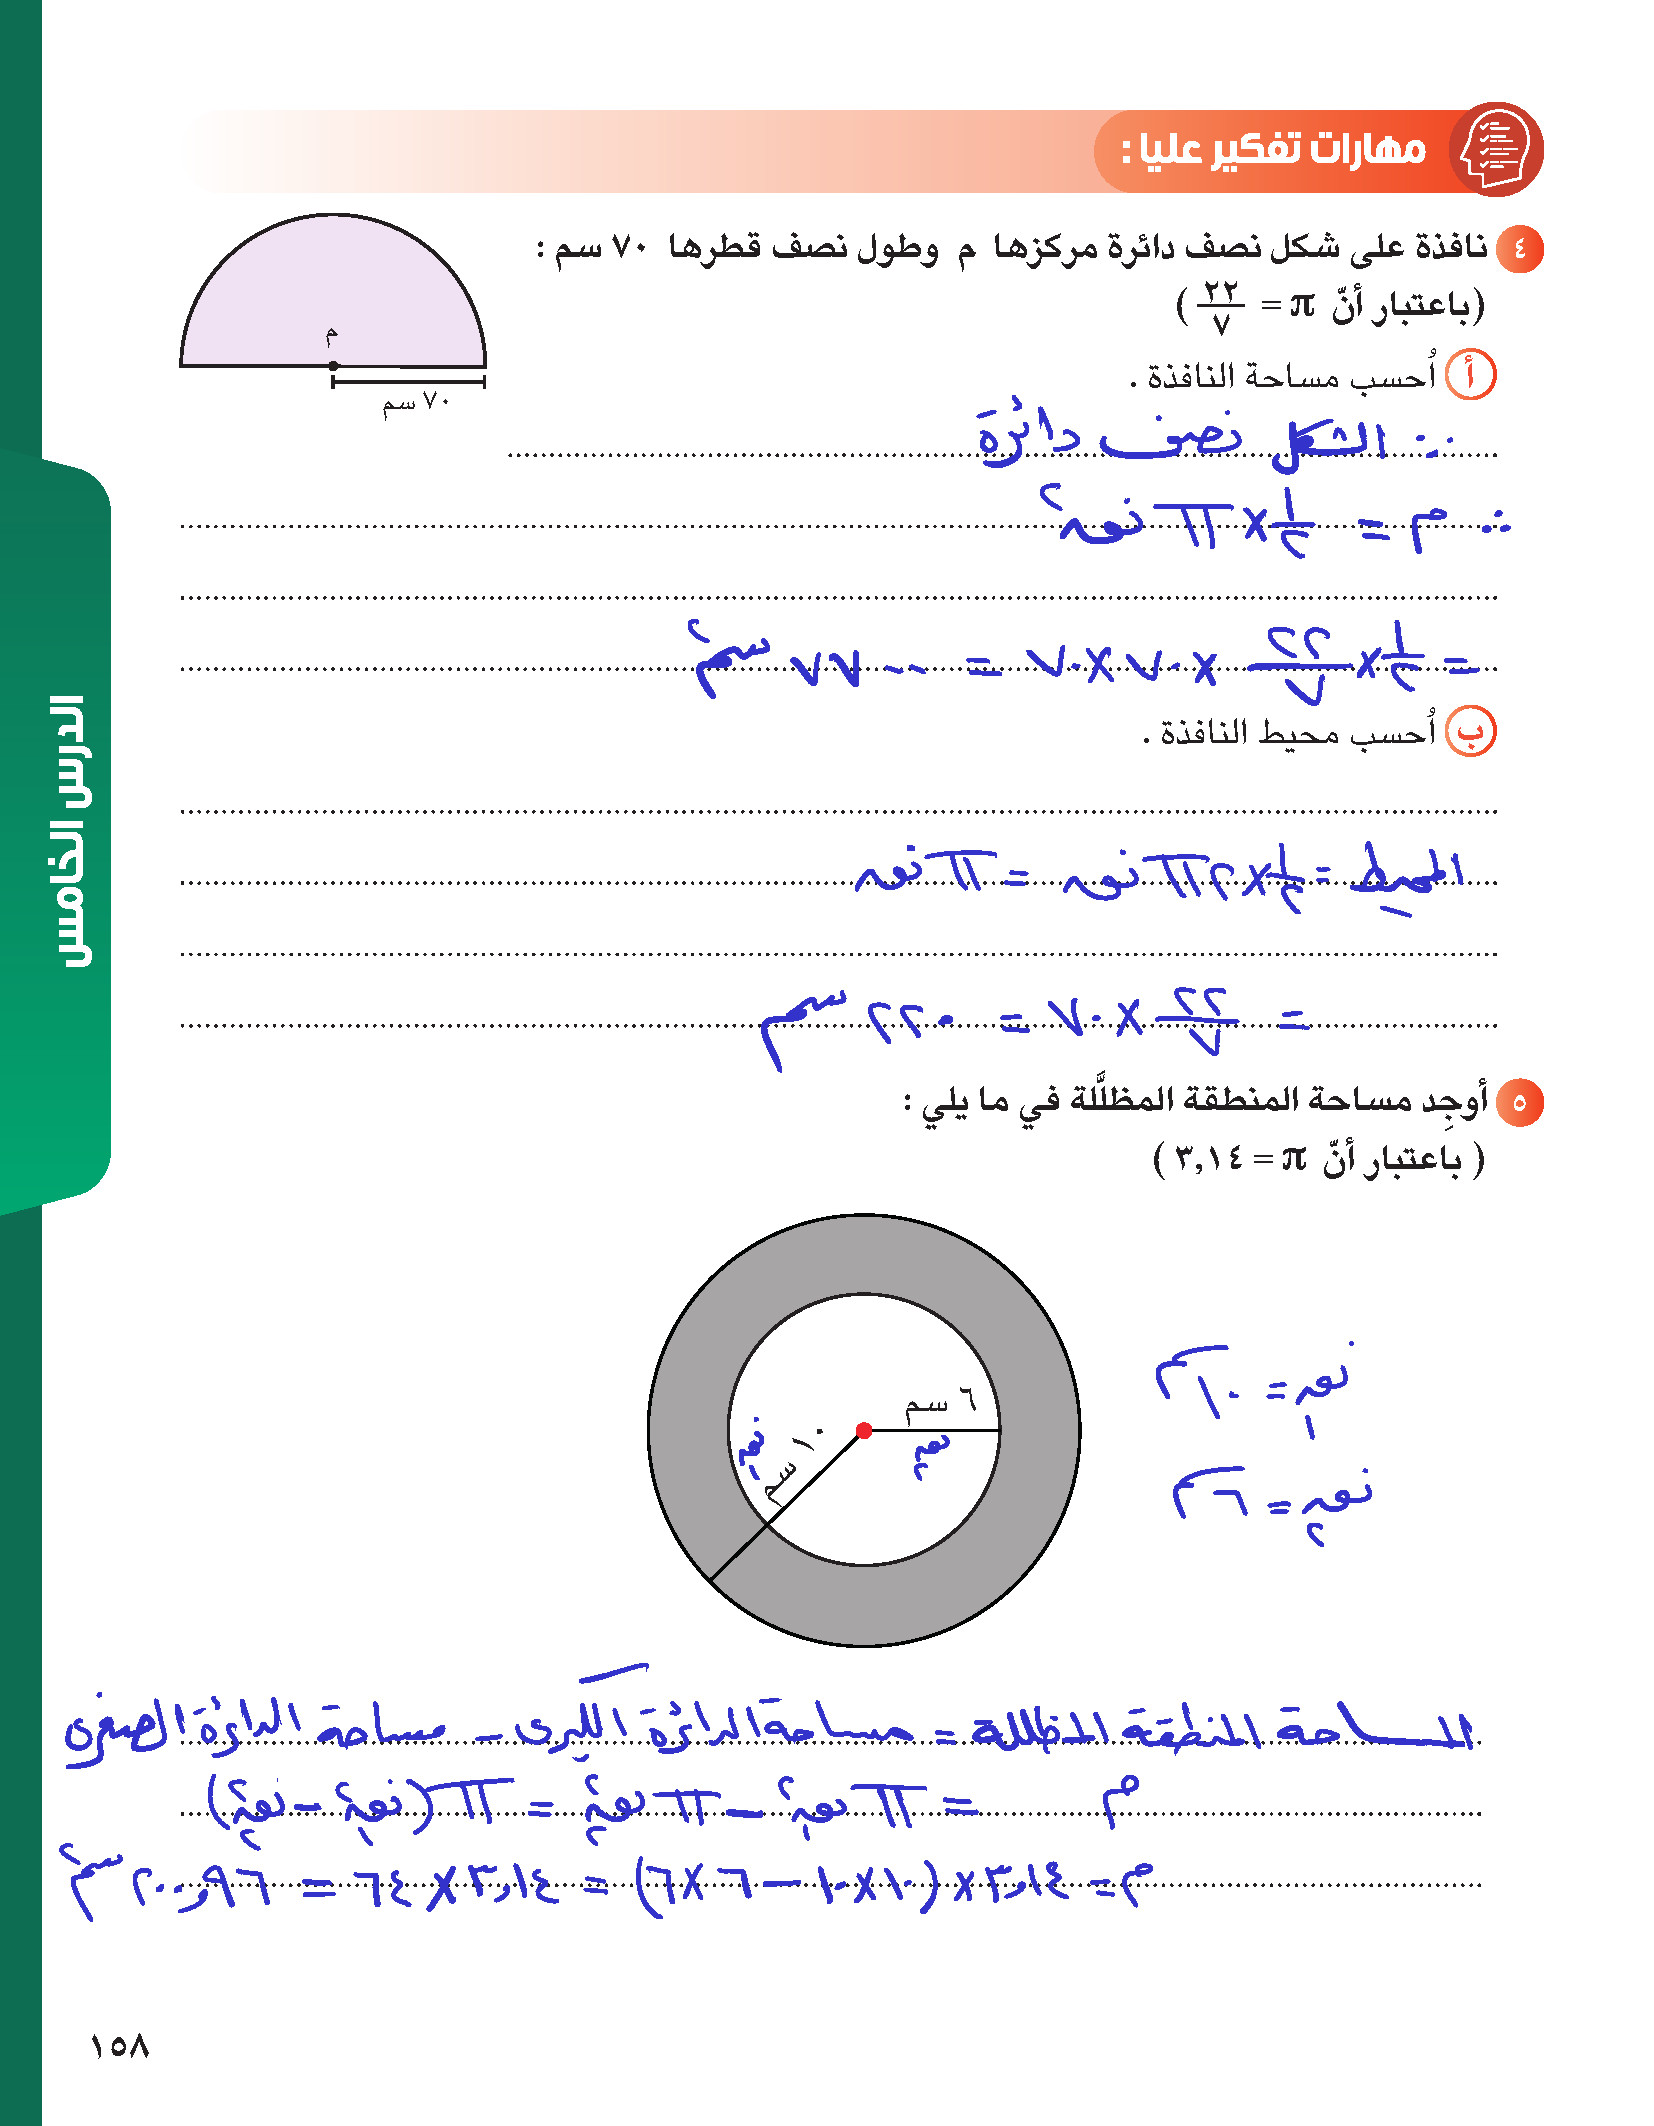 مهارات تفكير عليا :
٤ نافذة على شكل نصف دائرة مركزها م وطول نصف قطرها ٧٠ سم :
(باعتبار أنّ π = ٢٢/٧)
م
٧٠ سم
أ اُحسب مساحة النافذة .
∵ الشكل نصف دائرة
∴ م = ١/٢ × π نق٢
= ١/٢ × ٢٢/٧ × ٧٠ × ٧٠ = ٧٧٠٠ سم٢
ب اُحسب محيط النافذة .
المحيط = ١/٢ × ٢ π نق = π نق
= ٢٢/٧ × ٧٠ = ٢٢٠ سم
الدرس الخامس
٥ أوجِد مساحة المنطقة المظلَّلة في ما يلي :
( باعتبار أنّ π = ٣,١٤ )
٦ سم
نق٢
١٠ سم
نق١
نق١ = ١٠ سم
نق٢ = ٦ سم
المساحة المنطقة المظللة = مساحة الدائرة الكبرى − مساحة الدائرة الصغرى
م = π نق١٢ − π نق٢٢ = π (نق١٢ − نق٢٢)
م = ٣,١٤ × (١٠×١٠ − ٦×٦) = ٣,١٤ × ٦٤ = ٢٠٠,٩٦ سم٢
١٥٨